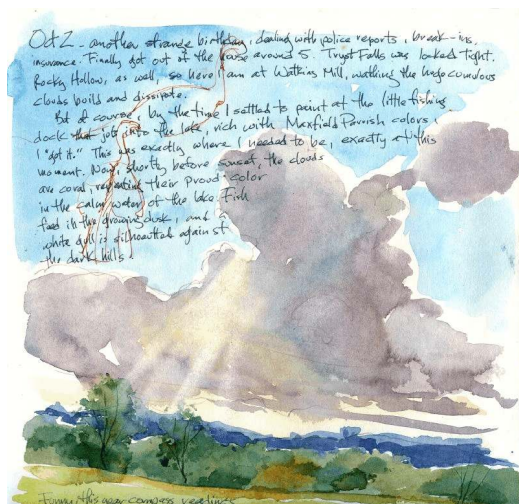 Oct 2 - another strange birthday, dealing with police reports, break-ins,
insurance. Finally got out of the house around 5. Trust Falls was locked tight.
Rocky Hollow, as well, so here I am at Watkins Mill, watching the huge cumulous
clouds build and dissipate.
But of course, by the time I settled to paint at the little fishing
dock that juts into the lake, rich with Maxfield Parrish colors,
I "got it." This was exactly where I needed to be, exactly at this
moment. Now, shortly before sunset, the clouds
are coral, repeating their proud color
in the calm waters of the lake. Fish
feed in the growing dusk, and a
white gull is silhouetted against
the dark hills.
Funny, this year compass readings